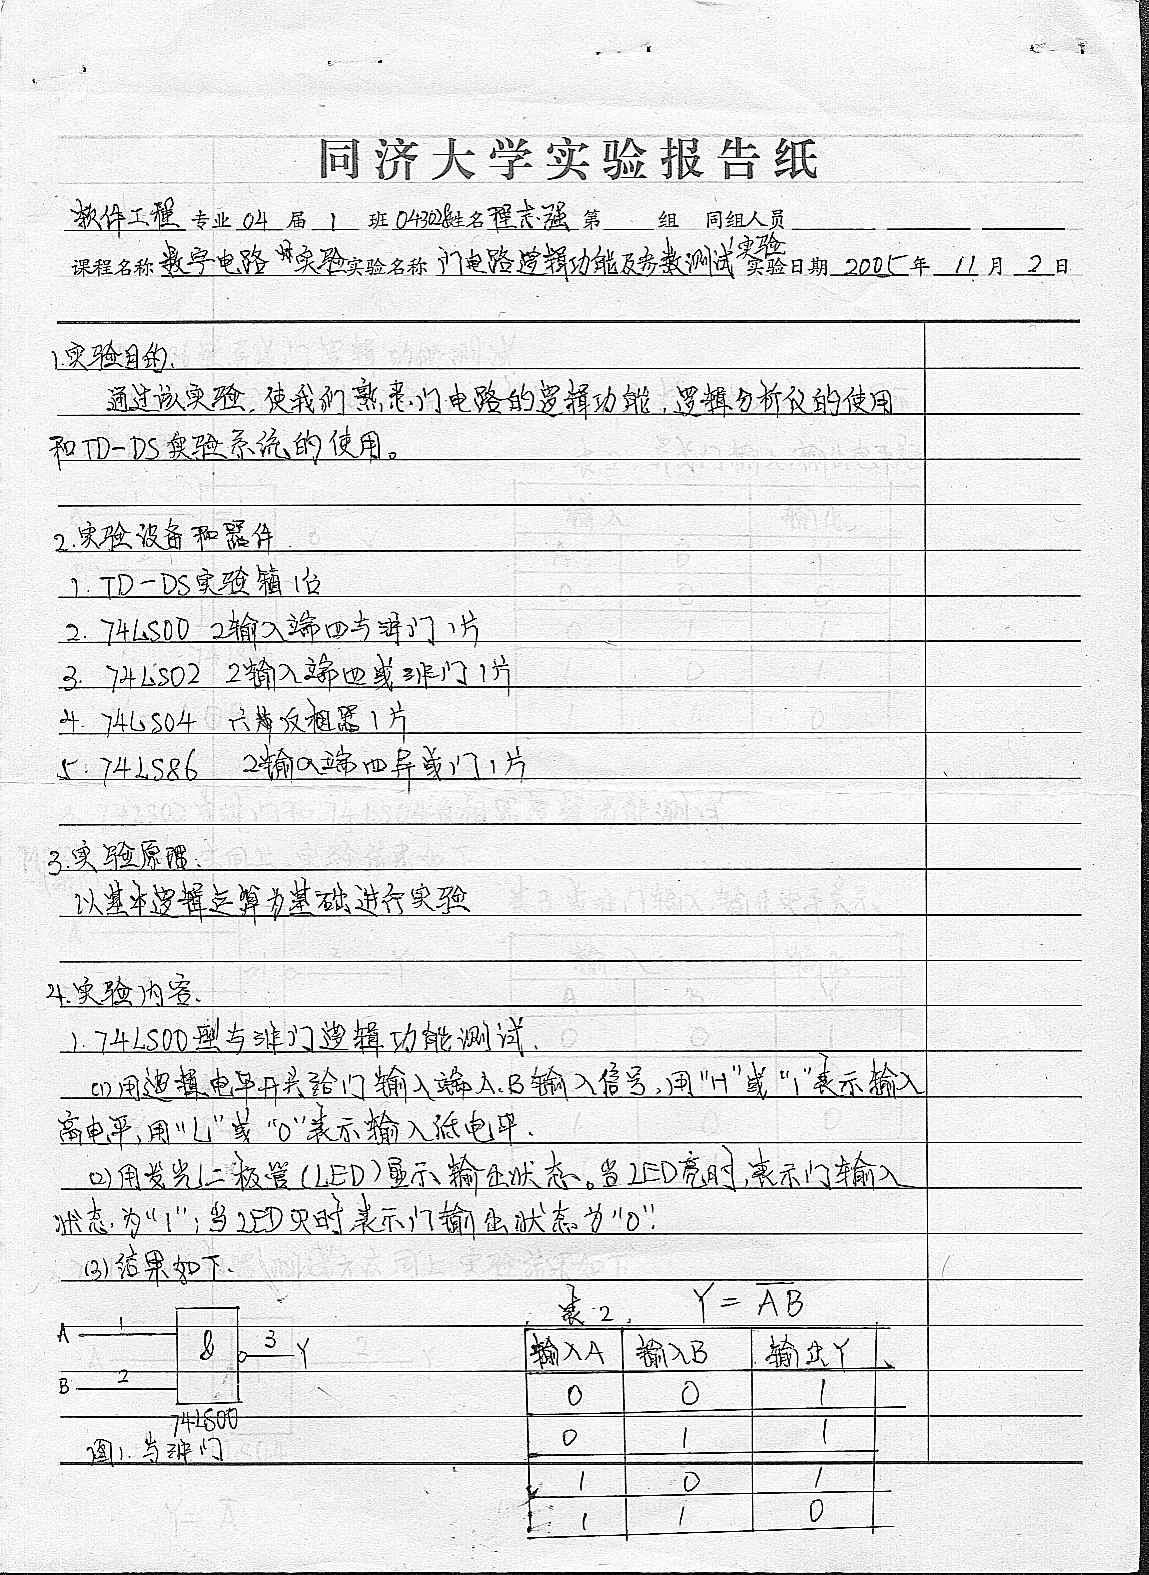 同济大学实验报告纸
软件工程 专业 04 届 1 班 043028 姓名 程志强 第 组 同组人员
课程名称 数字电路 实验 实验名称 门电路逻辑功能及参数测试实验 实验日期 2005 年 11 月 2 日
1.实验目的.
通过该实验,使我们熟悉门电路的逻辑功能,逻辑分析仪的使用
和TD-DS实验系统的使用。
2.实验设备和器件
1. TD-DS实验箱1台
2. 74LS00 2输入端四与非门1片
3. 74LS02 2输入端四或非门1片
4. 74LS04 六 反相器1片
5: 74LS86 2输入端四异或门1片
3.实验原理.
以基本逻辑运算为基础进行实验
4.实验内容.
1. 74LS00型与非门逻辑功能测试.
(1)用逻辑电平开关给门输入端A.B输入信号,用"H"或"1"表示输入
高电平,用"L"或"0"表示输入低电平.
(2)用发光二极管(LED)显示输出状态。当LED亮时,表示门输入
状态为"1";当LED灭时表示门输出状态为"0".
(3)结果如下.
A 1 & 3 Y
B 2
74LS00
图1.与非门
表2. Y = \overline{AB}
输入A 输入B 输出Y
0 0 1
0 1 1
1 0 1
1 1 0